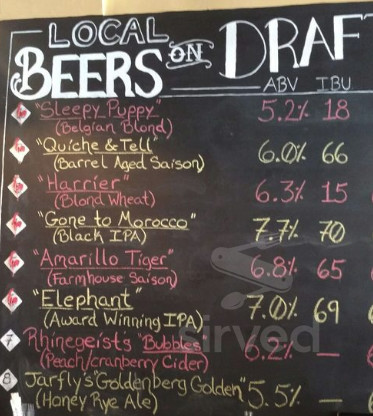 LOCAL
BEERS ON DRAF
ABV IBU
"Sleepy Puppy" 5.2% 18
(Belgian Blond)
"Quiche & Tell" 6.0% 66
(Barrel Aged Saison)
"Harrier" 6.3% 15
(Blond Wheat)
"Gone to Morocco" 7.7% 70
(Black IPA)
"Amarillo Tiger" 6.8% 65
(Farmhouse Saison)
"Elephant" 7.0% 69
(Award Winning IPA)
sirved
7 Rhinegeists "Bubbles" 6.2% —
(Peach/cranberry Cider)
8 Jarfly's "Goldenberg Golden" 5.5% —
(Honey Rye Ale)